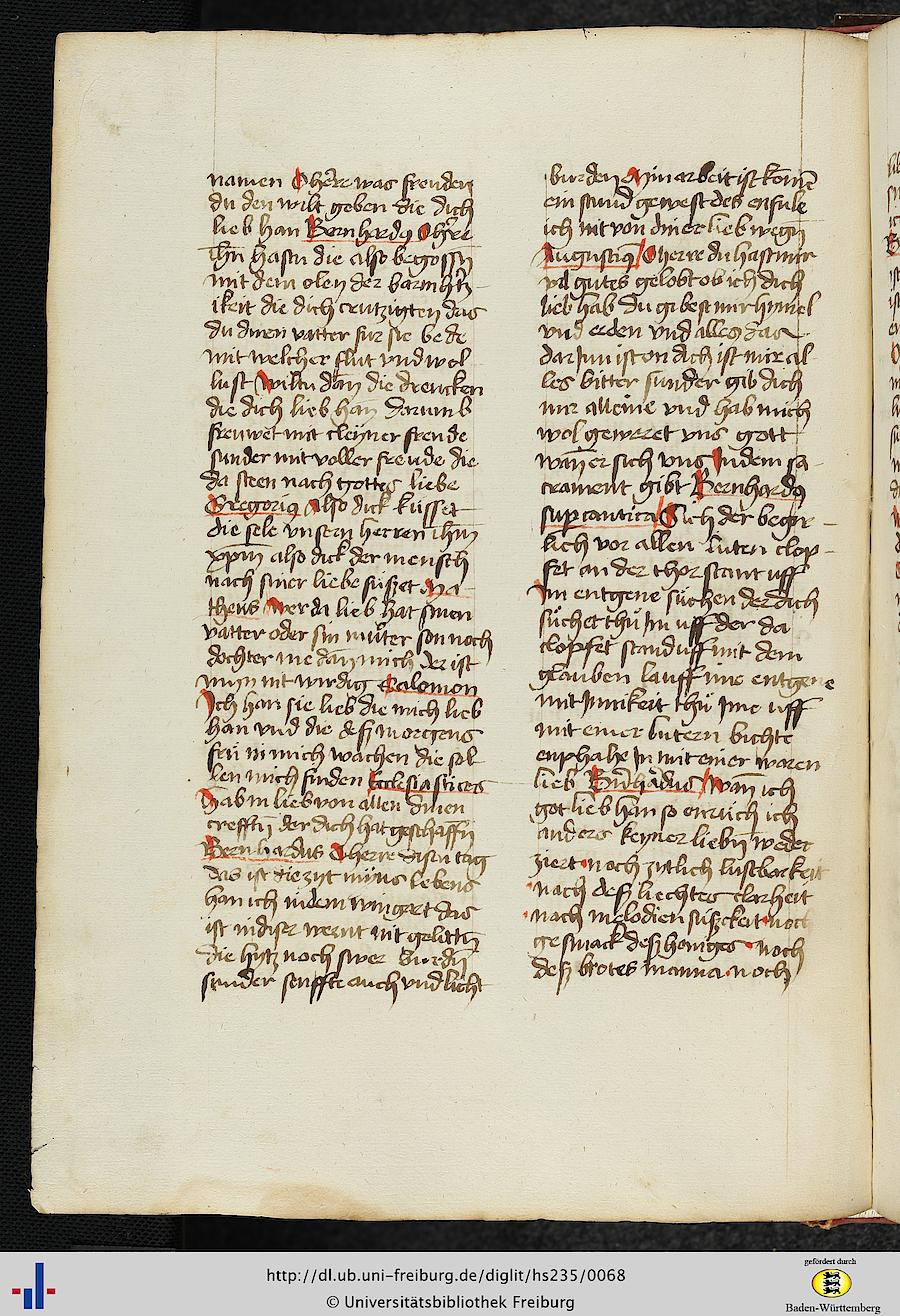 namen O herre was freuden
du den wilt geben die dich
lieb han Bernhardꝰ O h're
ihu hastu die also begossn̄
mit dem olen der barmh'tz-
ikeit die dich crutzigten das
du dinen vatter fur sie bede
mit welcher flut vnd wol
lust wiltu dan̄ die drencken
die dich lieb han Darumb
freuwet mit cleyner freude
sunder mit voller freude die
da steen nach gottes liebe
Gregoriꝰ Also dick kusset
die sele vnsern herren ihm̄
xpm̄ also dick der mensch
nach siner liebe sufzet Ma
theus Wer da lieb hat sinen
vatter oder sin muter son noch
dochter me dan̄ mich Der ist
myn nit wirdig Salomon
Ich han sie lieb die mich lieb
han vnd die desz morgens
fru in mich wachen die sol
len mich finden Ecclesiasticus
Hab in lieb von allen dinen
crefftn̄ der dich hat geschaffn̄
Bernhardus O herre disen tag
das ist die zyt myns lebens
han ich in dem wingart das
ist in diser wernt nit gelittn̄
die hytz noch swer burdn̄
sunder senffte auch vnd licht
burden Myn arbeit ist komē
ein stund gewest des enfule
ich nit von diner lieb wegn̄
Augustinꝰ O herre du hast mir
vil gutes gelobt ob ich dich
lieb hab du gibest mir hymel
vnd erden vnd alles das
dar Inn ist on dich ist mir al
les bitter sunder gib dich
mir alleine vnd hab mich
wol geweret vns gott
wan̄ er sich vns In dem sa-
crament gibt Bernhardꝰ
sup cantica Sich der begir-
lich vor allen luten clop-
fet an der thor stant uff
Im entgene suchen der dich
suchet thu Im uff der da
clopfet stand uff mit dem
glauben lauff ime entgene
mit Innikeit thu Ime uff
mit einer lutern bichte
enphahe In mit einer waren
lieb Bn̄hadus Wan̄ ich
got lieb han so enruch ich
anders keyner liebn̄ weder
ziert noch zytlich lustbarkeit
nach desz liechtes clarheit
nach melodien suszkeit noch
gesmack desz honiges noch
desz brotes manna noch
http://dl.ub.uni-freiburg.de/diglit/hs235/0068
© Universitätsbibliothek Freiburg
gefördert durch
Baden-Württemberg